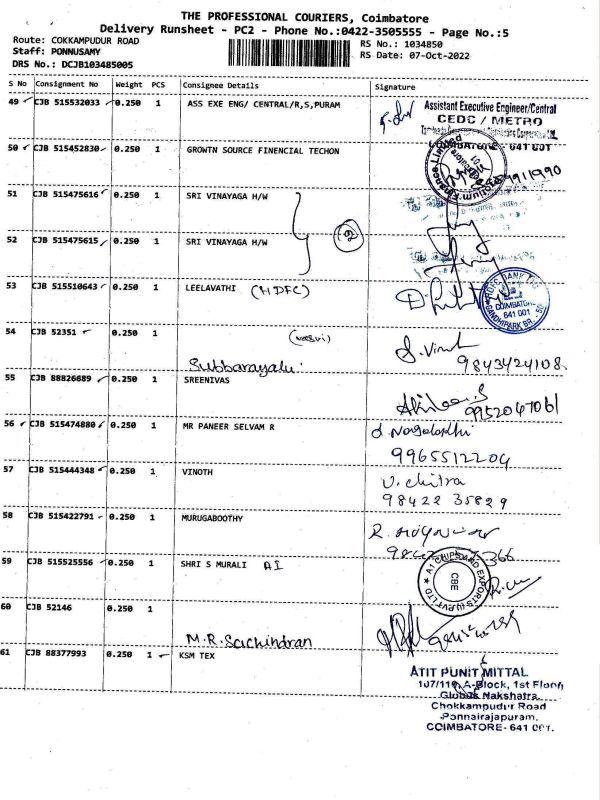 THE PROFESSIONAL COURIERS, Coimbatore
Delivery Runsheet - PC2 - Phone No.:0422-3505555 - Page No.:5
Route: COKKAMPUDUR ROAD
Staff: PONNUSAMY
DRS No.: DCJB103485005
RS No.: 1034850
RS Date: 07-Oct-2022
S No Consignment No Weight PCS Consignee Details Signature
49 CJB 515532033 0.250 1 ASS EXE ENG/ CENTRAL/R,S,PURAM
Assistant Executive Engineer/Central
CEDC / METRO
COIMBATORE - 641 001
50 CJB 515452830 0.250 1 GROWTN SOURCE FINENCIAL TECHON
51 CJB 515475616 0.250 1 SRI VINAYAGA H/W
52 CJB 515475615 0.250 1 SRI VINAYAGA H/W
53 CJB 515510643 0.250 1 LEELAVATHI (HDFC)
HDFC BANK LTD
COIMBATORE
641 001
GANDHIPARK BR.
54 CJB 52351 0.250 1
Subbarayalu
9843424108
55 CJB 88826689 0.250 1 SREENIVAS
9952047061
56 CJB 515474880 0.250 1 MR PANEER SELVAM R
9965512204
57 CJB 515444348 0.250 1 VINOTH
V. Chitra
98422 35829
58 CJB 515422791 0.250 1 MURUGABOOTHY
59 CJB 515525556 0.250 1 SHRI S MURALI A1
A1 CHIPS AND EXPORTS (I) PVT LTD
CBE
60 CJB 52146 0.250 1
M.R. Sachindran
61 CJB 88377993 0.250 1 KSM TEX
ATIT PUNIT MITTAL
107/110 A-Block, 1st Floor,
Globus Nakshatra,
Chokkampudur Road
Ponnairajapuram,
COIMBATORE- 641 001.